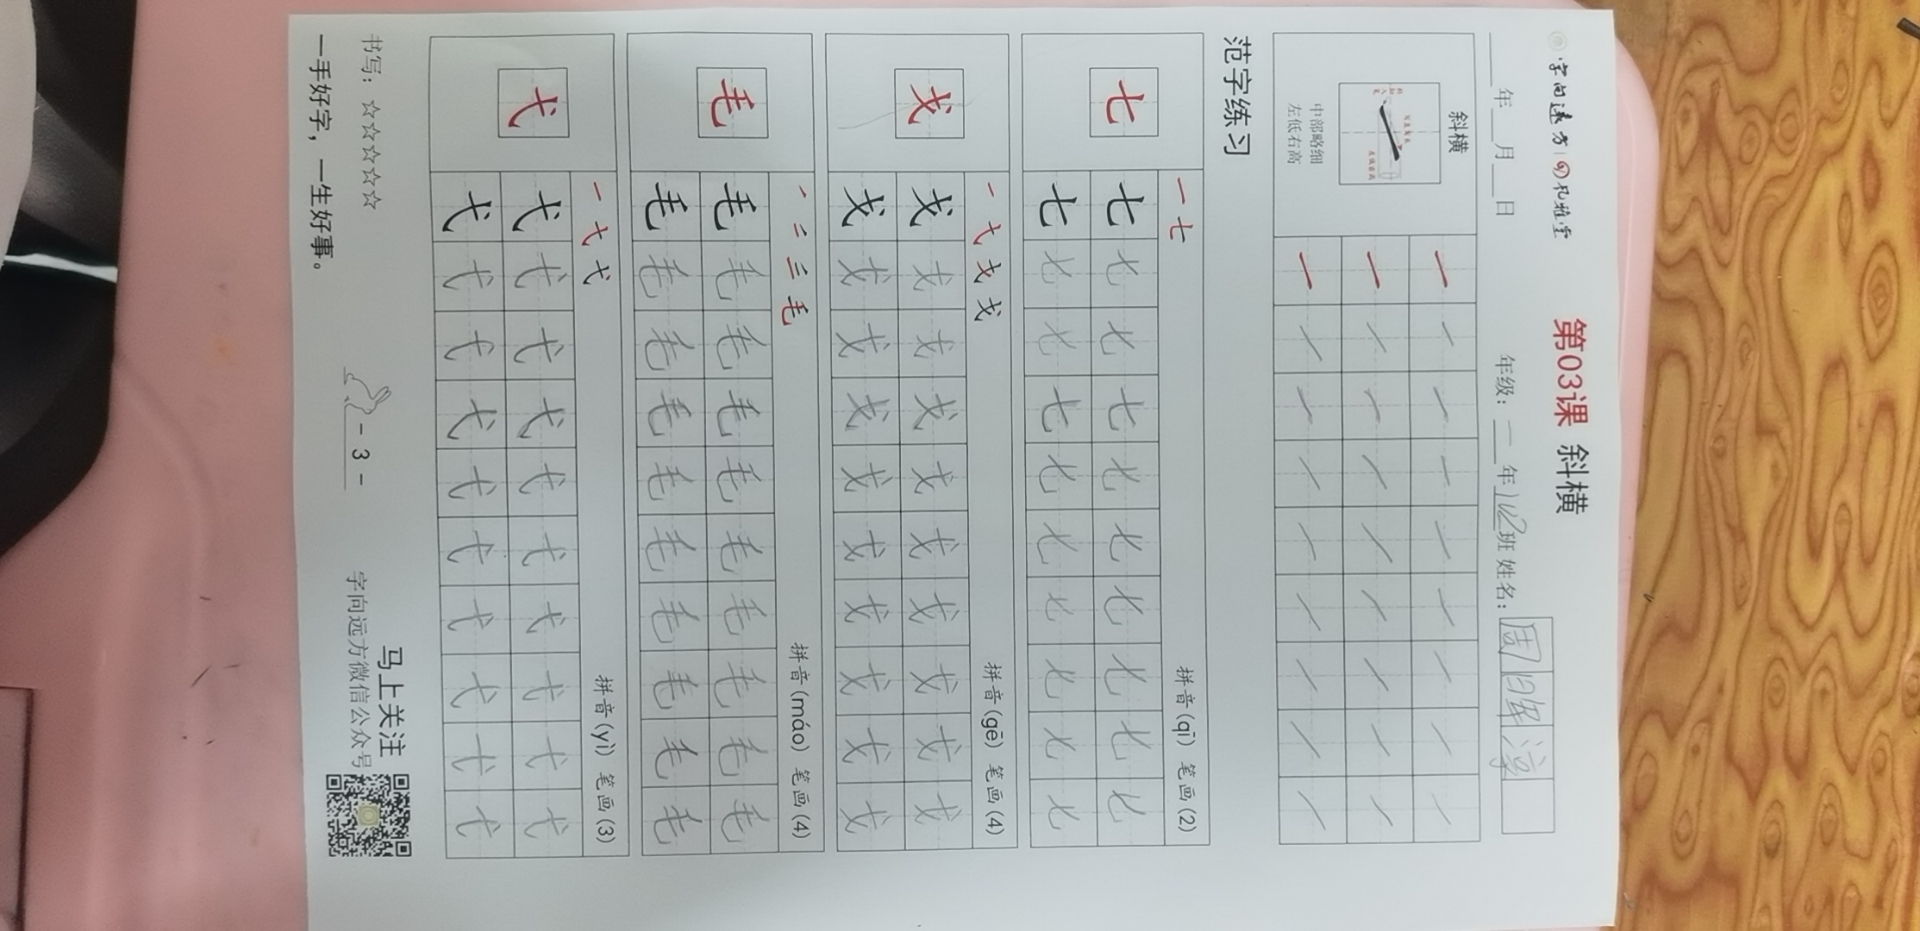 字向远方
第03课 斜横
年 月 日 年级：一年1（2）班 姓名：周
斜横
中部略细
左低右高
范字练习
七
拼音(qī) 笔画(2)
七 七 七 七 七 七 七 七 七 七
七 七 七 七 七 七 七 七 七 七
戈
拼音(gē) 笔画(4)
戈 戈 戈 戈 戈 戈 戈 戈 戈 戈
戈 戈 戈 戈 戈 戈 戈 戈 戈 戈
毛
拼音(máo) 笔画(4)
毛 毛 毛 毛 毛 毛 毛 毛 毛 毛
毛 毛 毛 毛 毛 毛 毛 毛 毛 毛
弋
拼音(yì) 笔画(3)
弋 弋 弋 弋 弋 弋 弋 弋 弋 弋
弋 弋 弋 弋 弋 弋 弋 弋 弋 弋
书写：☆☆☆☆☆
- 3 -
马上关注
字向远方微信公众号
一手好字，一生好事。